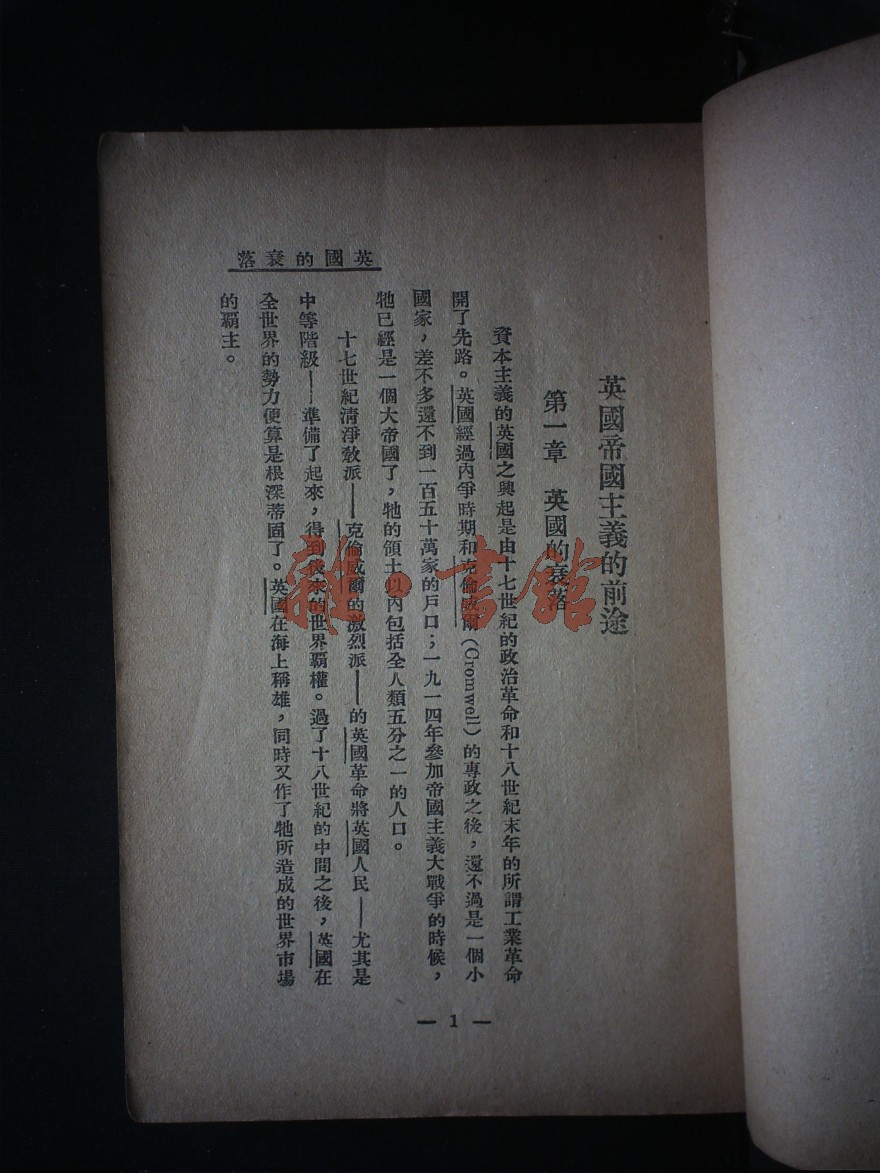 英國的衰落
英國帝國主義的前途
第一章 英國的衰落
資本主義的英國之興起是由十七世紀的政治革命和十八世紀末年的所謂工業革命
開了先路。英國經過內爭時期和克倫威爾(Cromwell)的專政之後,還不過是一個小
國家,差不多還不到一百五十萬家的戶口;一九一四年參加帝國主義大戰爭的時候,
牠已經是一個大帝國了,牠的領土以內包括全人類五分之一的人口。
十七世紀清淨教派——克倫威爾的激烈派——的英國革命將英國人民——尤其是
中等階級——準備了起來,得到後來的世界覇權。過了十八世紀的中間之後,英國在
全世界的勢力便算是根深蒂固了。英國在海上稱雄,同時又作了牠所造成的世界市場
的覇主。
— 1 —
雜·書館